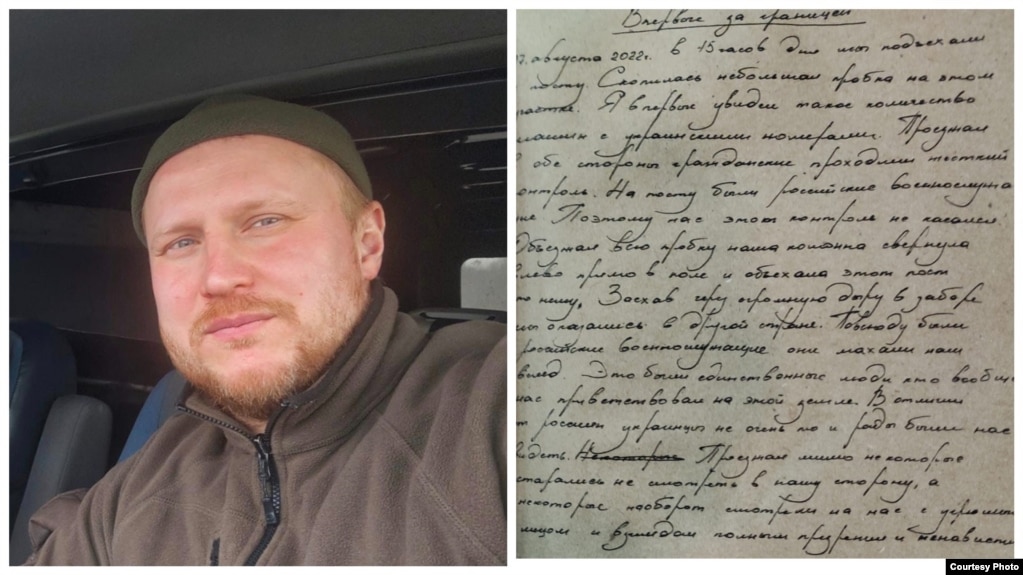 Впервые за границей
7. августа 2022г. в 15 часов дня мы подъехали
посту. Скопилась небольшая пробка на этом
частке. Я впервые увидел такое количество
машин с украинскими номерами. Проезжая
в обе стороны гражданские проходили жесткий
онтроль. На посту были российские военнослужа
ие Поэтому нас этот контроль не касался
Объезжая всю пробку наша колонна свернула
лево прямо в поле и объехала этот пост
по нему, Заехав в огромную дыру в заборе
мы оказались в другой стране. Повсюду были
российские военнослужащие они махали нам
вслед. Это были единственные люди кто вообще
нас приветствовал на этой земле. В отличии
т россиян украинцы не очень то и рады были нас
видеть. Некоторые Проезжая мимо некоторые
старались не смотреть в нашу сторону, а
некоторые наоборот смотрели на нас с угрюмым
лицом и взглядом полным презрения и ненависти
Courtesy Photo